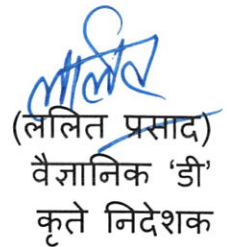 ललित
(ललित प्रसाद)
वैज्ञानिक ‘डी’
कृते निदेशक